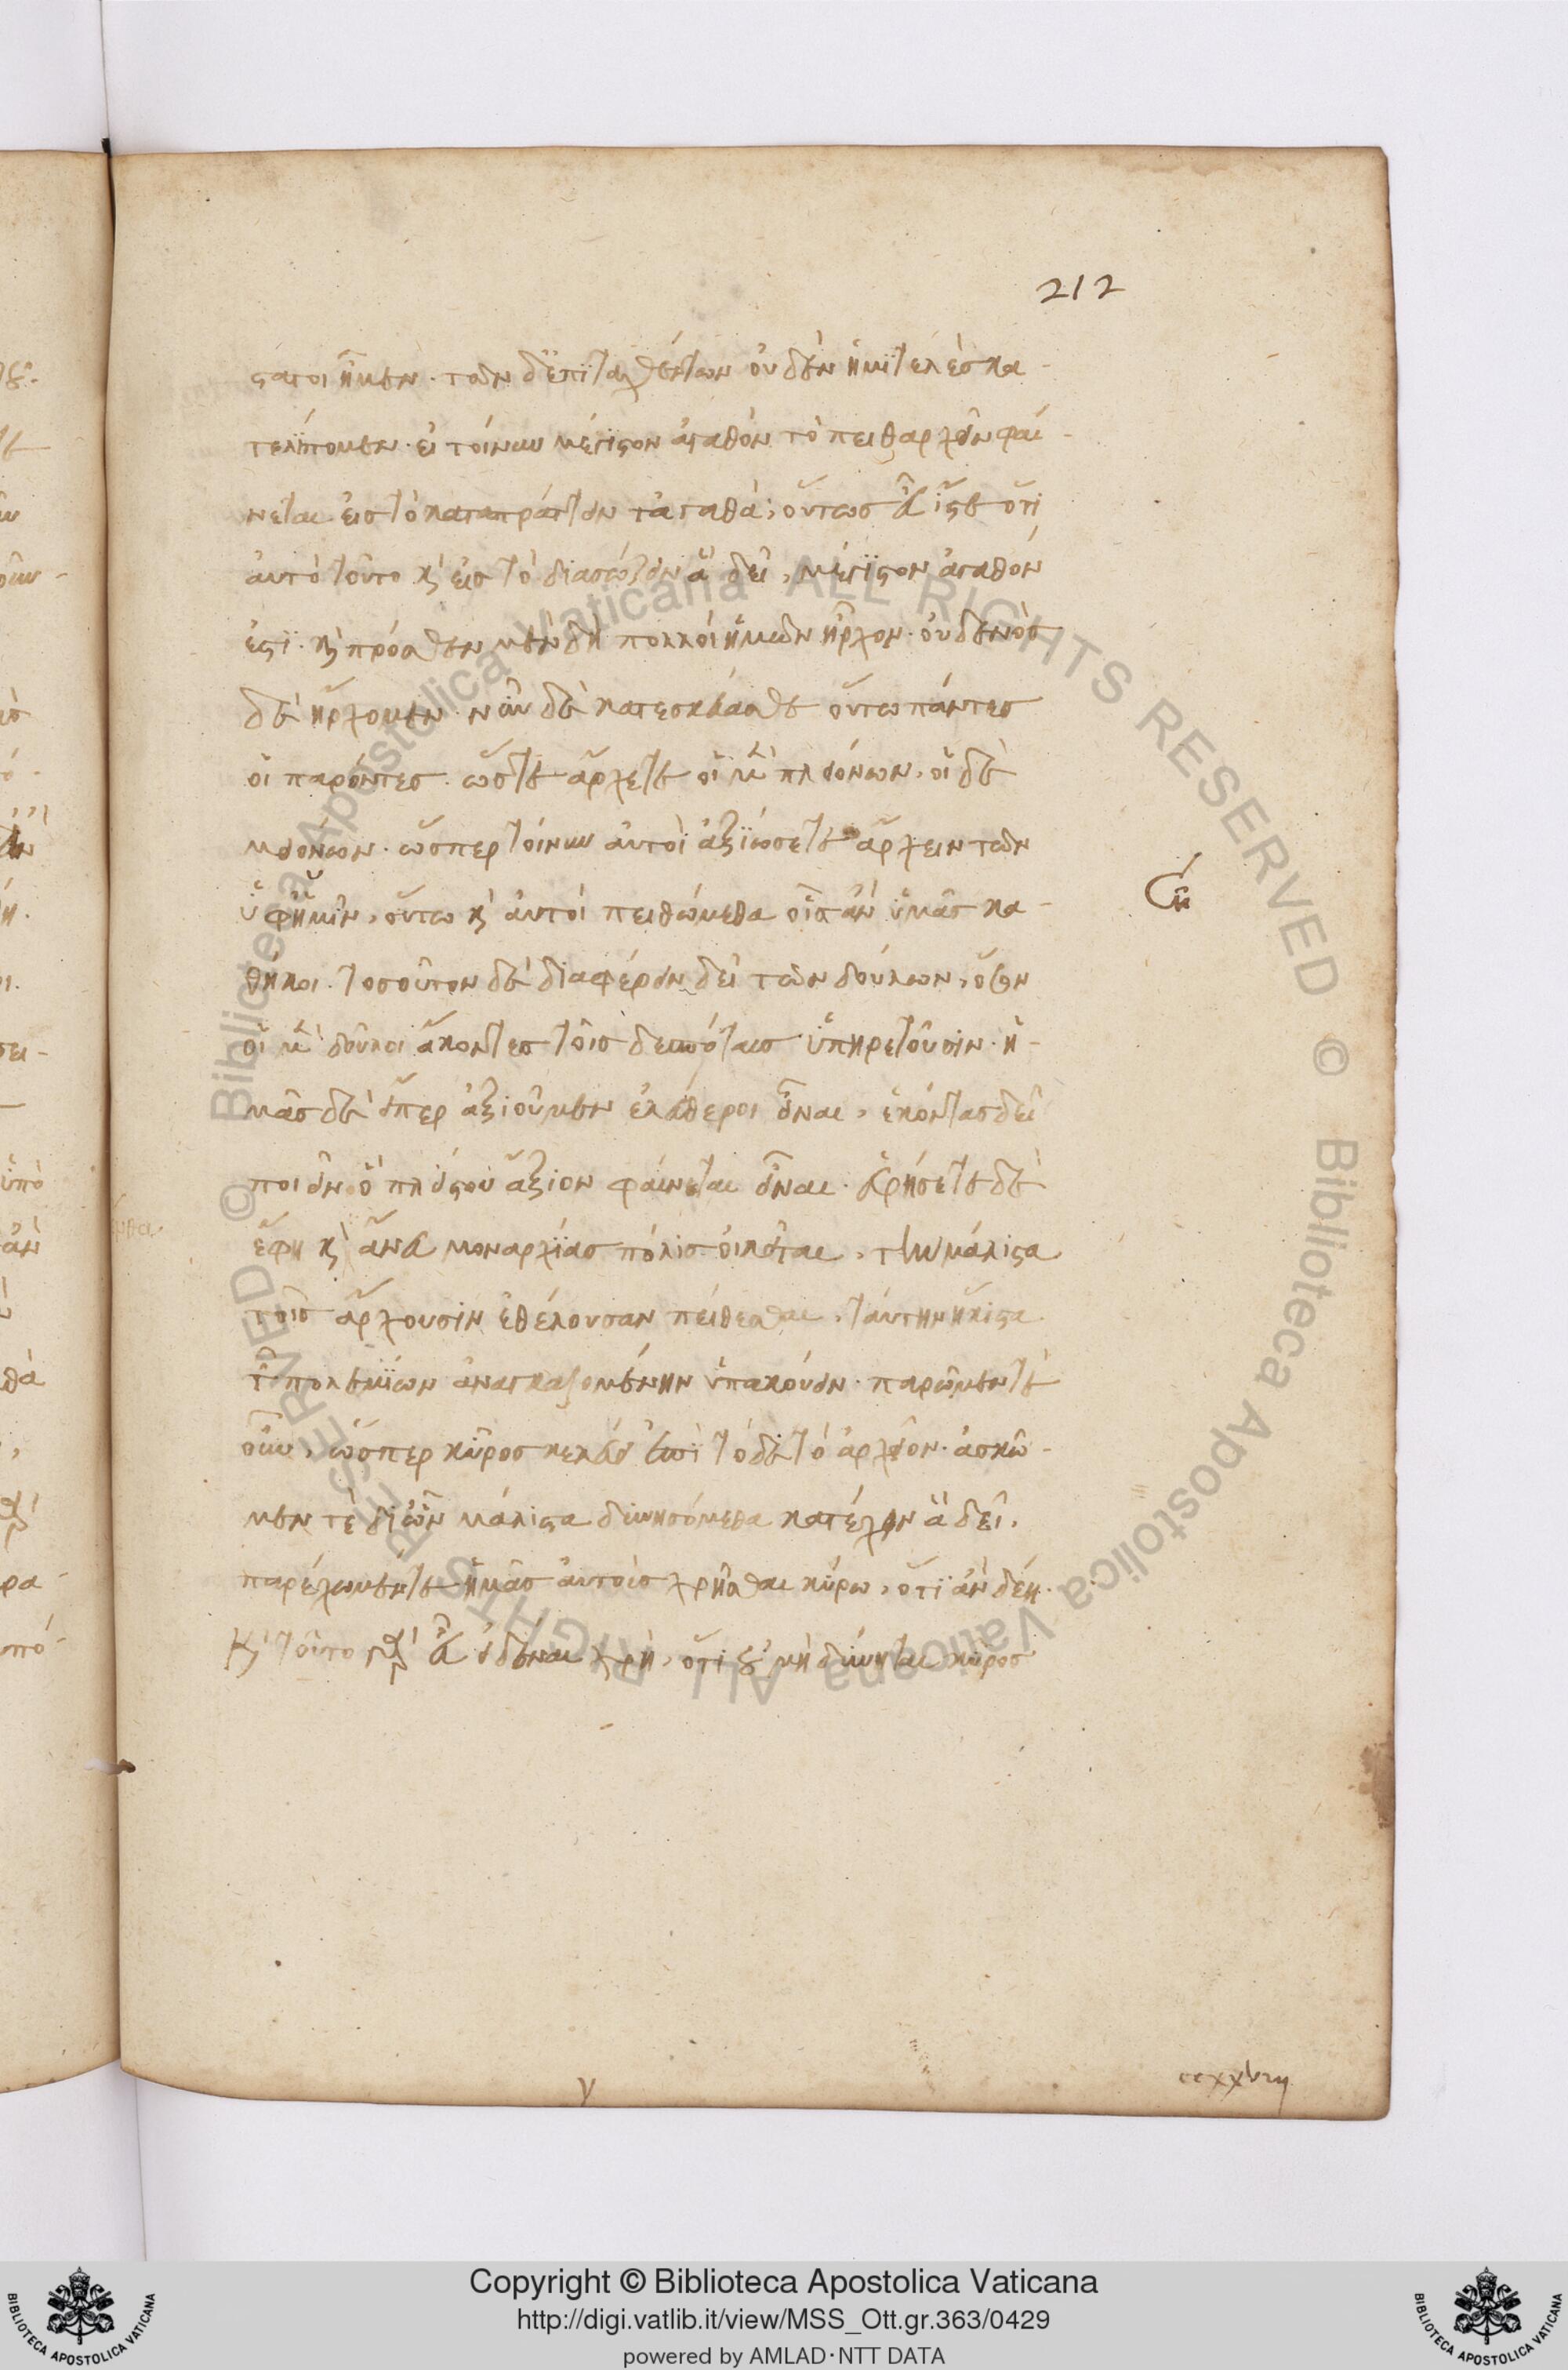 212
στατοι ἦμεν. τῶν δ' ἐπιταχθέντων οὐδὲν ἡμιτελὲς κα-
τελίπομεν. εἰ τοίνυν μέγιστον ἀγαθὸν τὸ πειθαρχεῖν φαί-
νεται εἰς τὸ καταπράττειν τἀγαθά, οὕτως εὖ ἴστε ὅτι
αὐτὸ τοῦτο καὶ εἰς τὸ διασώζειν ἃ δεῖ, μέγιστον ἀγαθόν
ἐστι. καὶ πρόσθεν μὲν δὴ πολλοὶ ἡμῶν ἦρχον οὐδενὸς
δὲ ἤρχομεν. νῦν δὲ κατεσκεύασθε οὕτω πάντες
οἱ παρόντες. ὥστε ἄρχετε οἱ μὲν πλειόνων, οἱ δὲ
μειόνων. ὥσπερ τοίνυν αὐτοὶ ἀξιώσετε ἄρχειν τῶν
ὑφ' ἡμῖν, οὕτω καὶ αὐτοὶ πειθώμεθα οἷς ἂν ὑμᾶς κα-
θήκοι. τοσοῦτον δὲ διαφέρειν δεῖ τῶν δούλων, ὅσον
οἱ μὲν δοῦλοι ἄκοντες τοῖς δεσπόταις ὑπηρετοῦσιν. ἡ-
μᾶς δὲ εἴπερ ἀξιοῦμεν ἐλεύθεροι εἶναι, ἑκόντας δεῖ
ποιεῖν ὃ πλείστου ἄξιον φαίνεται εἶναι. εὑρήσετε δὲ
ἔφη καὶ ἄνευ μοναρχίας πόλις οἰκεῖται, τὴν μάλιστα
τοῖς ἄρχουσιν ἐθέλουσαν πείθεσθαι, ταύτην ἥκιστα
τῶν πολεμίων ἀναγκαζομένην ὑπακούειν. παρῶμέν τε
οὖν, ὥσπερ κῦρος κελεύει ἐπὶ τόδε τὸ ἀρχεῖον. ἀσκῶ-
μέν τε δι' ὧν μάλιστα δυνησόμεθα κατέχειν ἃ δεῖ.
παρέχωμέν τε ἡμᾶς αὐτοὺς χρῆσθαι κύρῳ, ὅτι ἂν δέῃ.
καὶ τοῦτο γὰρ εὖ εἰδέναι χρή, ὅτι οὐ μὴ δύνηται κῦρος
ccxxviij